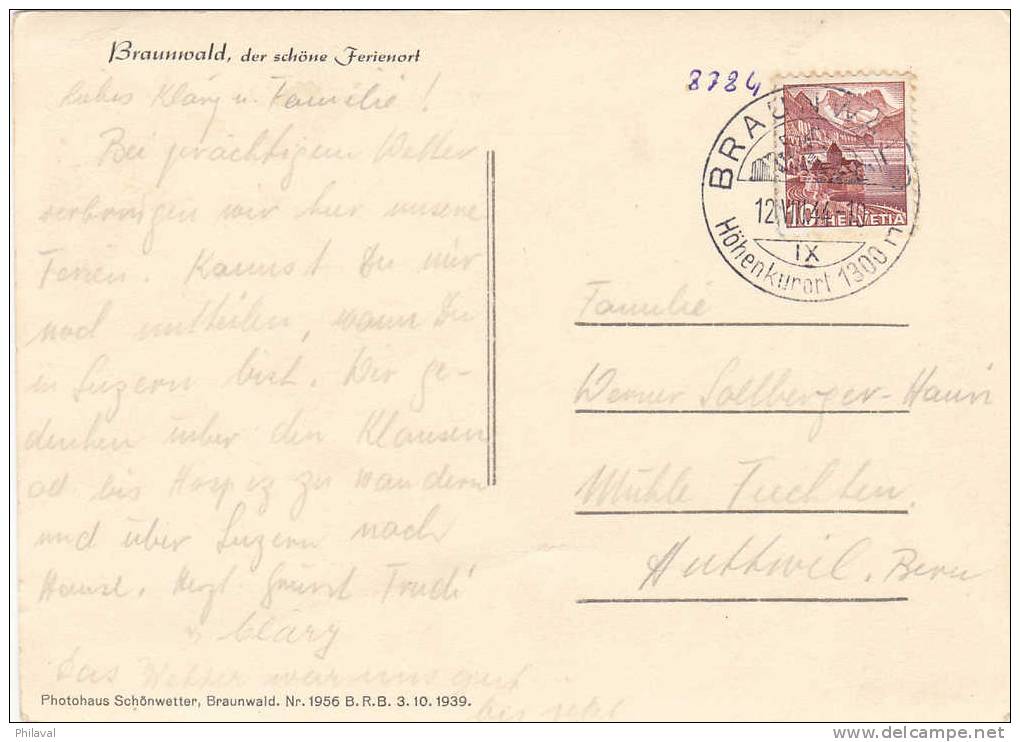 Braunwald, der schöne Ferienort
Liebes Kläry u. Familie!
Bei prächtigem Wetter
verbringen wir hier unsere
Ferien. Kannst Du mir
noch mitteilen, wann Du
in Luzern bist. Wir ge-
denken über den Klausen
od bis Hospiz zu wandern
und über Luzern nach
Hause. Herzl Grüsst Trudi
Cläry
Das Wetter war uns gut
bis jetzt
Photohaus Schönwetter, Braunwald. Nr. 1956 B.R.B. 3.10.1939.
8784
BRAUNWALD
12.VIII.44-10
IX
Höhenkurort 1300 m
10 HELVETIA
Familie
Werner Sollberger-Hauri
Mühle Fiechten.
Huttwil. Bern
Philaval
www.delcampe.net